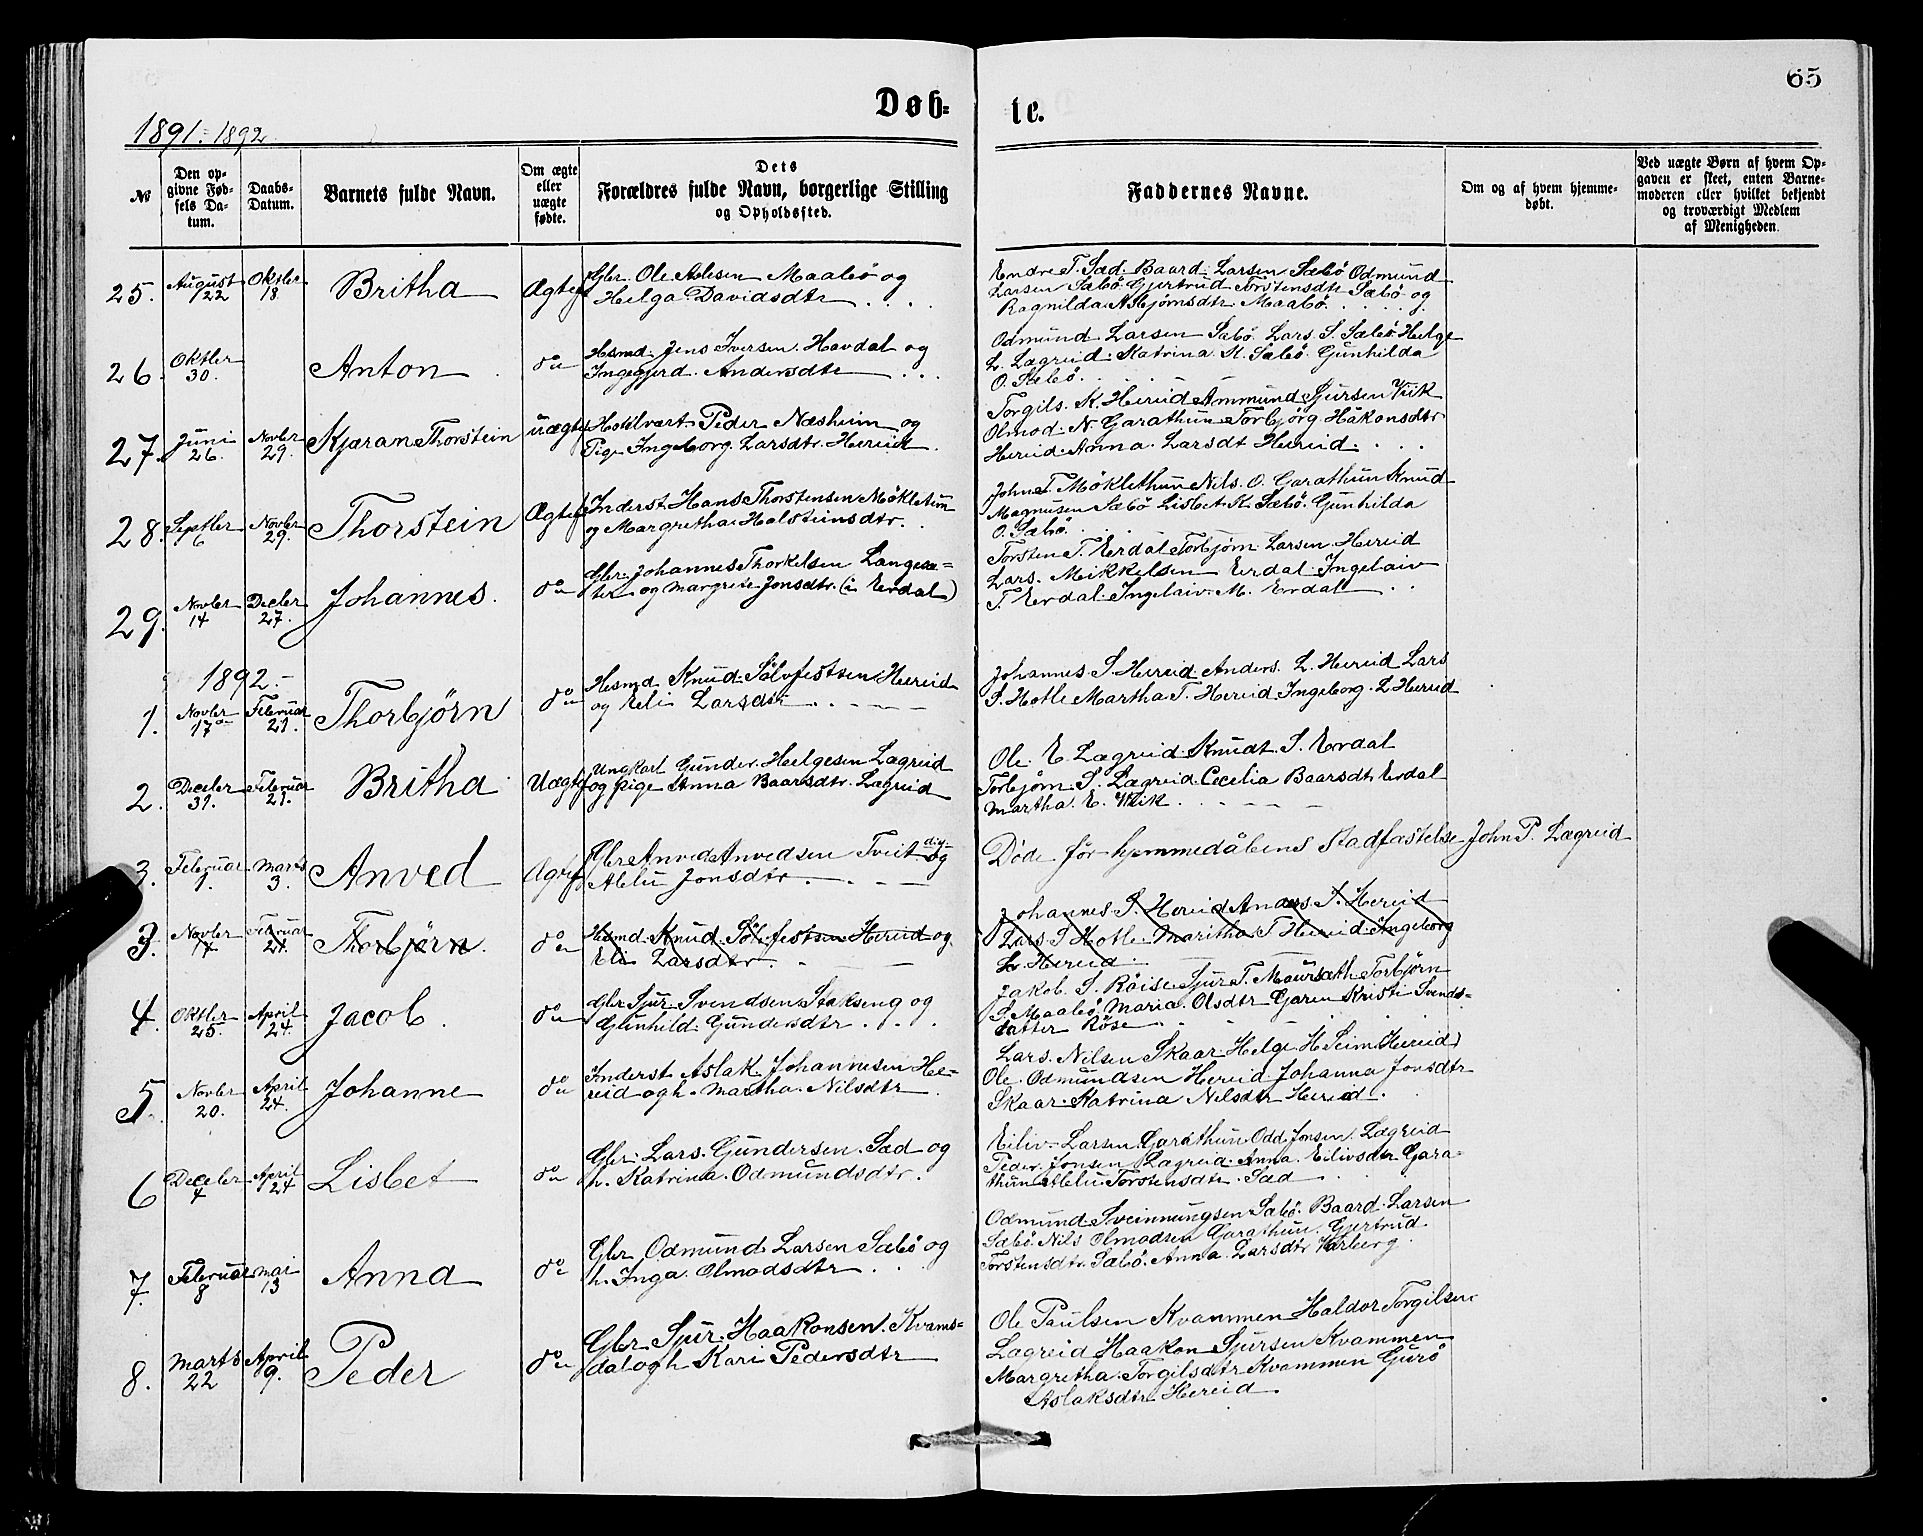 65
Døb-
te.
1891-1892
№
Den op-
givne Fød-
sels Da-
tum.
Daabs-
Datum.
Barnets fulde Navn.
Om ægte
eller
uægte
fødte.
Dets
Forældres fulde Navn, borgerlige Stilling
og Opholdssted.
Faddernes Navne.
Om og af hvem hjemme-
døbt.
Ved uægte Børn af hvem Op-
gaven er skeet, enten Barne-
moderen eller hvilket bekjendt
og troværdigt Medlem
af Menigheden.
25. August 22 Oktber 18 Britha Ægtef Gbr. Ole Aslesen Maabö og
Helga Davidsdtr
Endre T. Sæd. Baard Larsen Sæbö Odmund
Larsen Sæbö Gjertrud Torstensdtr Sæbö og
Ragnilda Asbjörnsdtr Maabö.
26. Oktber 30. Anton do Hsmd. Jens Iversen Havdal og
Ingegjerd Andersdtr
Odmund Larsen Sæbö. Lars S. Sæbö Helge
L. Lægreid Katrina K. Sæbö. Gunhilda
O. Sæbö.
27. Juni 26. Novber 29. Kjæran Thorstein uægte Peder Næsheim og
Pige Ingeborg Larsdtr. Hereid.
Torgils K. Hereid Ammund Sjursen Viik
Olmod N. Garathun Torbjörg Håkonsdtr
Hereid Anna Larsdt Hereid.
28. Septber 6 Novber 29. Thorstein Ægtef Inderst Hans Thorstensen Möklethun
og Margretha Halsteinsdtr.
John T Möklethun Nils. O. Garathun Knud
Magnusen Sæbö Lisbet K. Sæbö. Gunhilda
O. Sæbö.
29. Novber 14 Decber 27. Johannes. do Gbr. Johannes Thorkelsen Langesæ-
ter og Margrete Jonsdtr. (i Erdal)
Torsten T. Erdal Torbjörn Larsen Hereid
Lars. Mikkelsen Erdal Ingelaiv
T. Erdal. Ingelaiv M. Erdal
1892.
1. Novber 17 Februar 21. Thorbjörn do Hsmd Knud Sölvfestsen Hereid
og Eli Larsdtr
Johannes S Hereid Anders. L. Hereid Lars
S. Hotle Martha T. Hereid Ingeborg L Hereid
2. Decber 31. Februar 21. Britha Uægte Ungkarl Gunder Helgesen Lægreid
og pige Anna Baarsdtr. Lægreid
Ole E Lægreid Knudt S. Erdal
Torbjörn S. Lægreid Cecelia Baarsdt Erdal
Martha E. Viik
3. Februar 1. Marts 3. Anved Ægtef Gbr Anved Anvedsen Tveit og
Abelu Jonsdtr
Döde för hjemmedåbens Stadfæstelse John P. Lægreid
3. Novber 17 Februar 21. Thorbjörn. do Hsmd. Knud Sölvfestsen Hereid og
Eli Larsdtr.
Johannes S. Hereid Anders S. Hereid
Lars S Hotle Maritha T Hereid Ingeborg
L. Hereid
4. Oktber 25. April 24. Jacob. do Gbr. Sjur Svendsen Stakseng og
Gunhild Gundersdtr
Jakob. S. Röise Sjur T. Maursæth Torbjörn
S. Maabö Maria Olsdtr Garen Kristi Svends-
datter Röse
5. Novber 20. April 24. Johanne do Inderst Aslak Johannesen He-
reid og h. Martha Nilsdtr
Lars. Nilsen Skaar Helge H Seim (Hereid)
Ole Odmundsen Hereid Johanna Jonsdtr
Skaar Katrina Nilsdtr Hereid.
6 Decber 4 April 24 Lisbet do Gbr. Lars. Gundersen. Sæd og
h. Katrina Odmundsdtr.
Eiliv Larsen Garathun Odd Jonsen Lægreid
Peder Jonsen Lægreid Anna Eilivsdtr Gara-
thun Abelu Torstensdtr Sæd
7. Februar 8 Mai 13 Anna do Gbr Odmund Larsen Sæbö og
h. Inga Olmodsdtr
Odmund Sveinnungsen Sæbö. Baard Larsen
Sæbö Nils Olmodsen Garathun Gjertrud
Torstensdtr Sæbö. Anna Larsdtr Varberg.
8. Marts 22 April 9. Peder do Gbr Sjur Haakonsen Kvams-
dal og h Kari Pedersdtr
Ole Paulsen Kvammen Haldor Torgilsen
Lægreid Haakon Sjursen Kvammen
Margretha Torgilsdtr Kvammen Gurö
Aslaksdtr Hereid